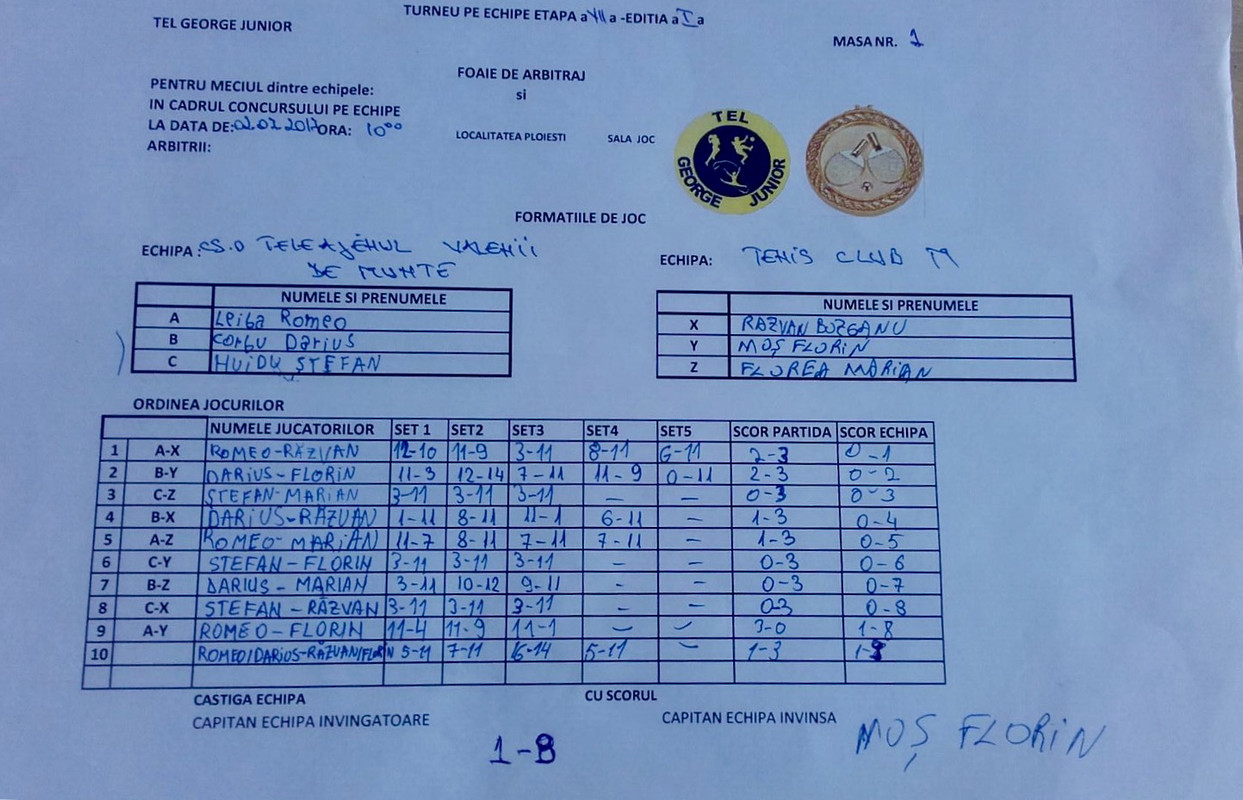 TURNEU PE ECHIPE ETAPA a VII a -EDITIA a I a
TEL GEORGE JUNIOR
MASA NR. 1
FOAIE DE ARBITRAJ
si
PENTRU MECIUL dintre echipele:
IN CADRUL CONCURSULUI PE ECHIPE
LA DATA DE: 02.07.2017 ORA: 10°°
LOCALITATEA PLOIESTI SALA JOC
ARBITRII:
TEL
GEORGE JUNIOR
FORMATIILE DE JOC
ECHIPA: CS.O TELEAJENUL VALENII
DE MUNTE
ECHIPA: TENIS CLUB M
NUMELE SI PRENUMELE
A Leiba Romeo
B Corbu Darius
C HUIDU ŞTEFAN
NUMELE SI PRENUMELE
X RAZVAN BOZGANU
Y MOŞ FLORIN
Z FLOREA MARIAN
ORDINEA JOCURILOR
NUMELE JUCATORILOR SET 1 SET2 SET3 SET4 SET5 SCOR PARTIDA SCOR ECHIPA
1 A-X ROMEO-RĂZVAN 12-10 11-9 3-11 8-11 6-11 2-3 0-1
2 B-Y DARIUS-FLORIN 11-3 12-14 7-11 11-9 0-11 2-3 0-2
3 C-Z STEFAN-MARIAN 3-11 3-11 3-11 - - 0-3 0-3
4 B-X DARIUS-RĂZVAN 1-11 8-11 11-1 6-11 - 1-3 0-4
5 A-Z ROMEO-MARIAN 11-7 8-11 7-11 7-11 - 1-3 0-5
6 C-Y STEFAN-FLORIN 3-11 3-11 3-11 - - 0-3 0-6
7 B-Z DARIUS-MARIAN 3-11 10-12 9-11 - - 0-3 0-7
8 C-X STEFAN-RĂZVAN 3-11 3-11 3-11 - - 0-3 0-8
9 A-Y ROMEO-FLORIN 11-4 11-9 11-1 - - 3-0 1-8
10 ROMEO/DARIUS-RĂZVAN/FLORIN 5-11 7-11 16-14 5-11 - 1-3 1-9
CASTIGA ECHIPA CU SCORUL
CAPITAN ECHIPA INVINGATOARE CAPITAN ECHIPA INVINSA
MOŞ FLORIN